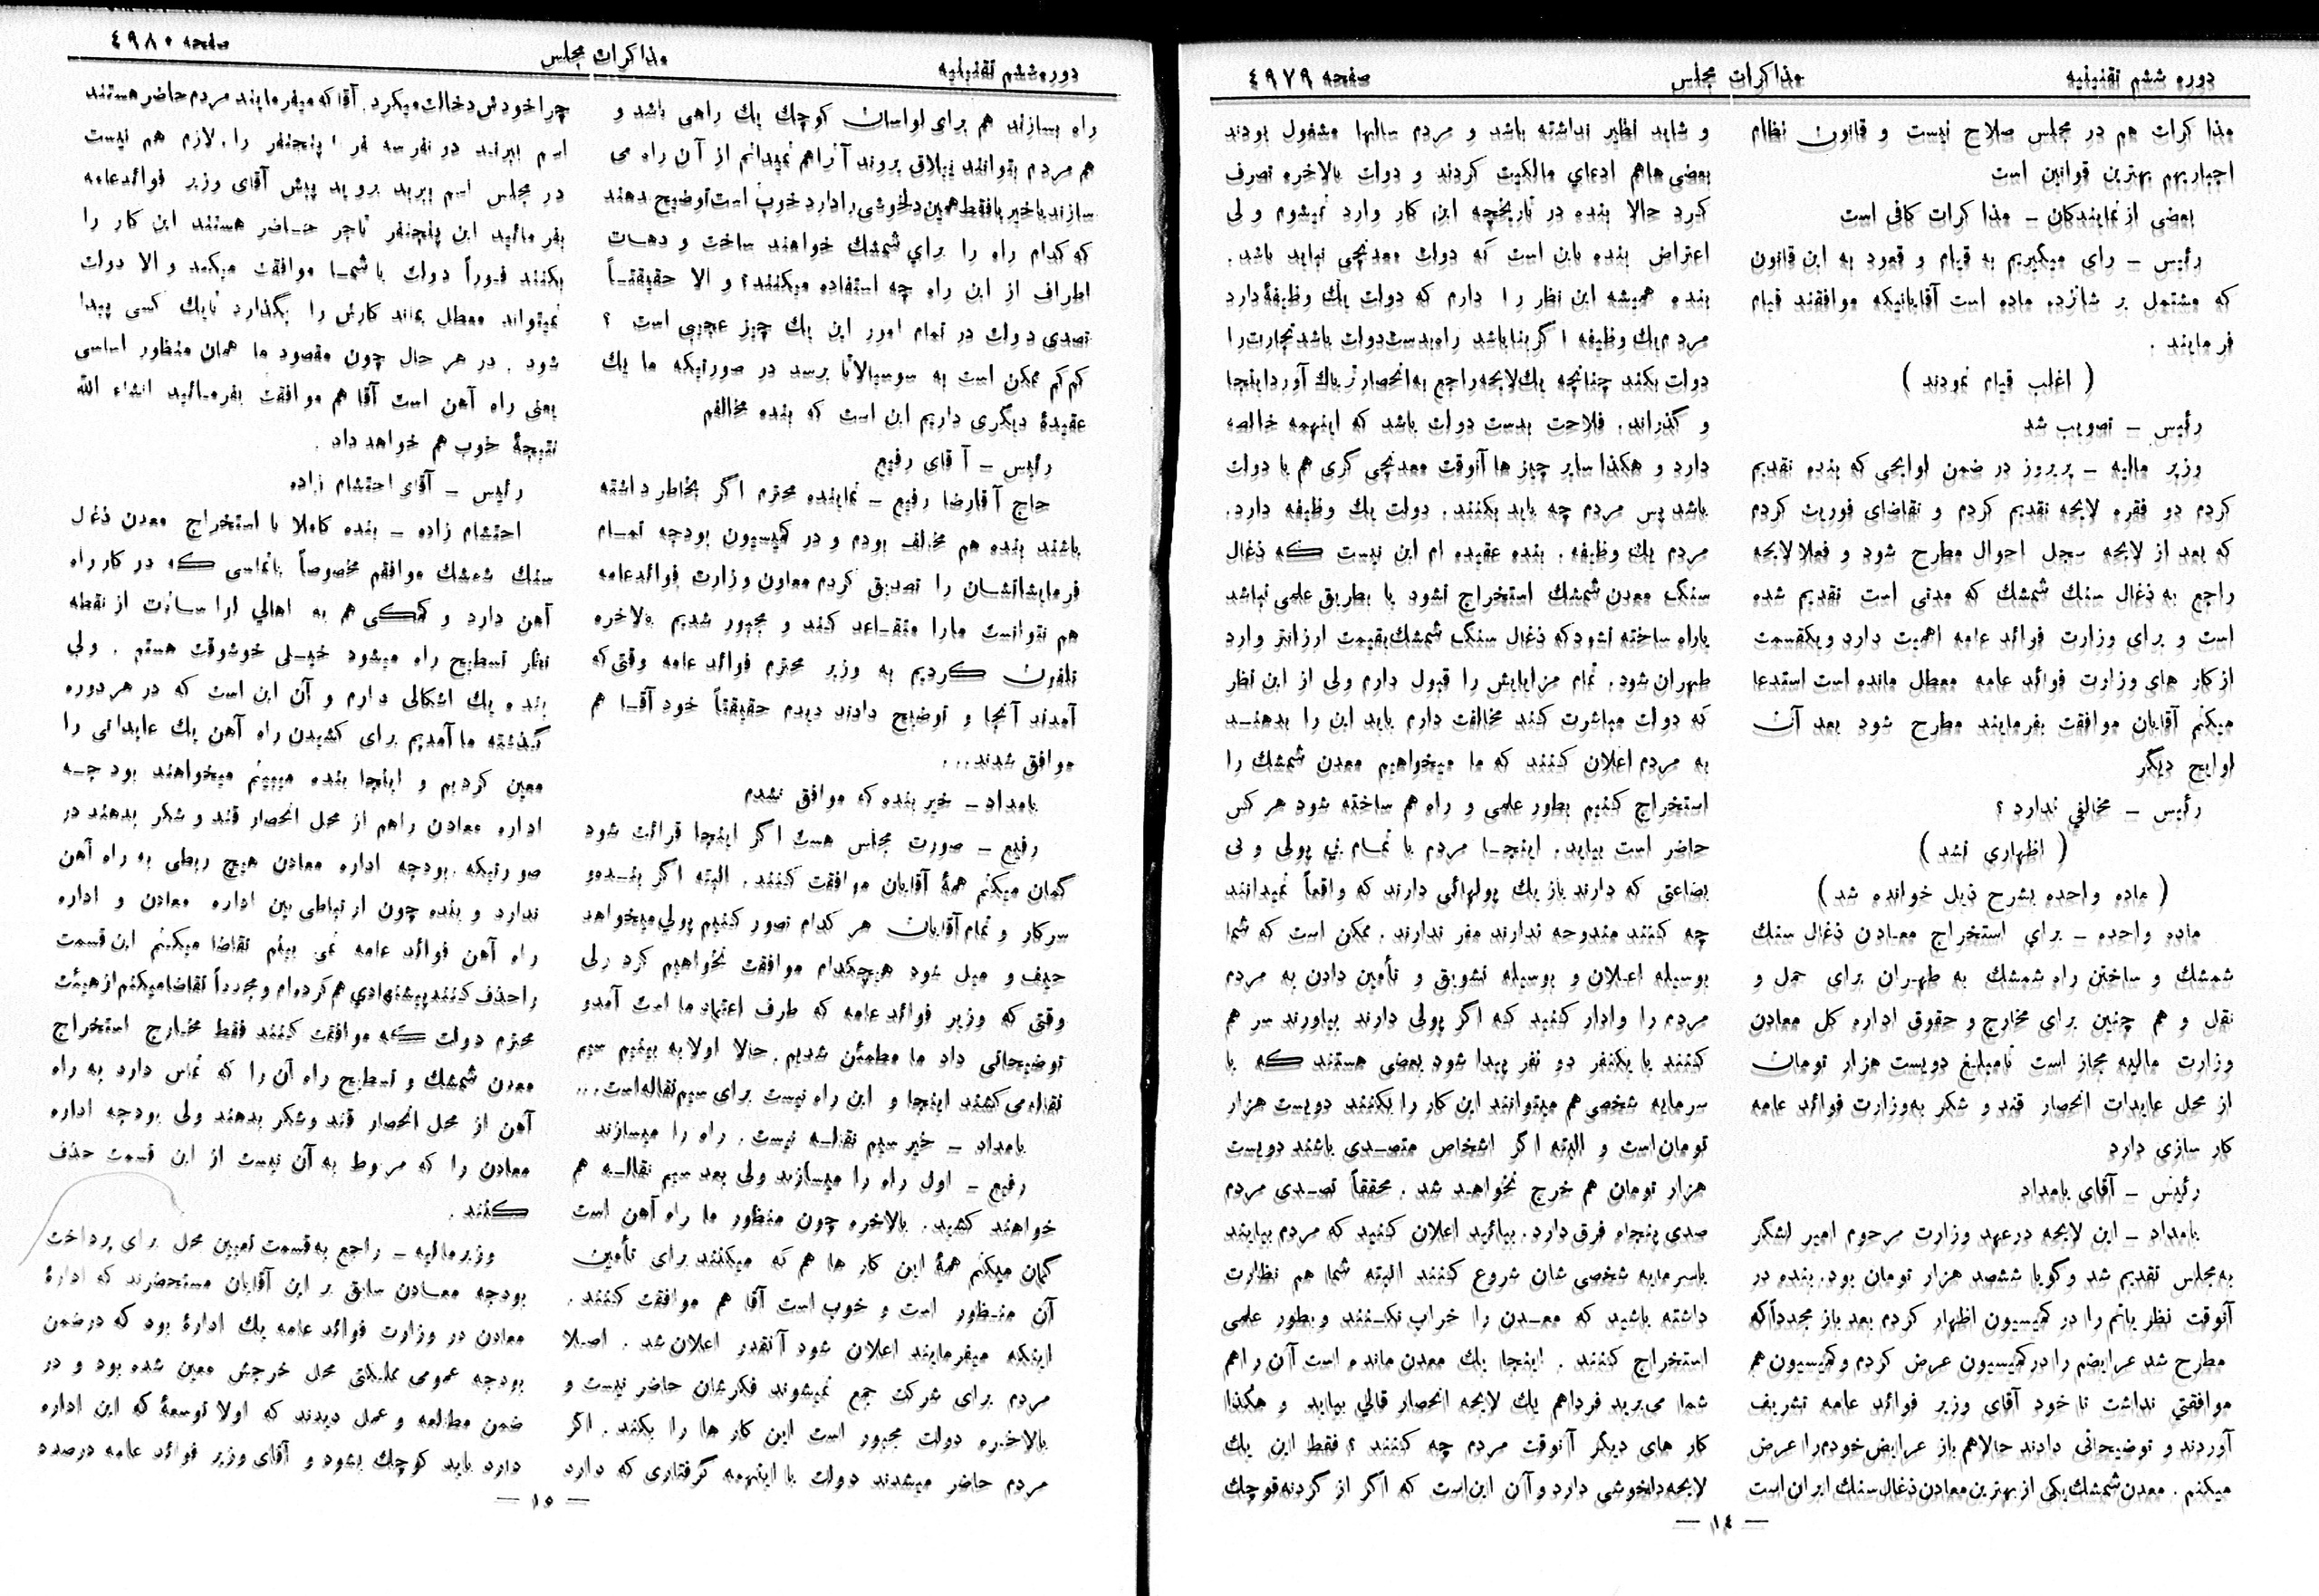 دوره ششم تقنینیه
مذاکرات مجلس
صفحه ٤٩٧٩
مذاکرات هم در مجلس صلاح نیست و قانون نظام
اجباریهم بهترین قوانین است
بعضی از نمایندکان ـ مذاکرات کافی است
رئیس ـ رای میگیریم به قیام و قعود به این قانون
که مشتمل بر شانزده ماده است آقایانیکه موافقند قیام
فرمایند .
( اغلب قیام نمودند )
رئیس ـ تصویب شد
وزیر مالیه ـ پریروز در ضمن لوایحی که بنده تقدیم
کردم دو فقره لایحه تقدیم کردم و تقاضای فوریت کردم
که بعد از لایحه سجل احوال مطرح شود و فعلا لایحه
راجع به ذغال سنك شمشك که مدتی است تقدیم شده
است و برای وزارت فوائد عامه اهمیت دارد و یکقسمت
از کار های وزارت فوائد عامه معطل مانده است استدعا
میکنم آقایان موافقت بفرمایند مطرح شود بعد آن
لوایح دیگر
رئیس ـ مخالفی ندارد ؟
( اظهاری نشد )
( ماده واحده بشرح ذیل خوانده شد )
ماده واحده ـ برای استخراج معادن ذغال سنك
شمشك و ساختن راه شمشك به طهران برای حمل و
نقل و هم چنین برای مخارج و حقوق اداره کل معادن
وزارت مالیه مجاز است تامبلغ دویست هزار تومان
از محل عایدات انحصار قند و شکر به وزارت فوائد عامه
کار سازی دارد
رئیس ـ آقای بامداد
بامداد ـ این لایحه درعهد وزارت مرحوم امیر لشگر
به مجلس تقدیم شد و گویا ششصد هزار تومان بود. بنده در
آنوقت نظریاتم را در کمیسیون اظهار کردم بعد باز مجدداً که
مطرح شد عرایضم را در کمیسیون عرض کردم و کمیسیون هم
موافقتی نداشت تا خود آقای وزیر فوائد عامه تشریف
آوردند و توضیحاتی دادند حالاهم باز عرایض خودم را عرض
میکنم . معدن شمشك یکی از بهترین معادن ذغال سنك ایران است
و شاید نظیر نداشته باشد و مردم سالها مشغول بودند
بعضی هاهم ادعای مالکیت کردند و دولت بالاخره تصرف
کرد حالا بنده در تاریخچه این کار وارد نمیشوم ولی
اعتراض بنده باین است که دولت معدنچی نباید باشد.
بنده همیشه این نظر را دارم که دولت یك وظیفهٔ دارد
مردم یك وظیفه اگر بنا باشد راه بدست دولت باشد تجارت را
دولت بکند چنانچه یك لایحه راجع به انحصار تریاك آورد اینجا
و گذراند. فلاحت بدست دولت باشد که اینهمه خالصه
دارد و هکذا سایر چیز ها آنوقت معدنچی گری هم با دولت
باشد پس مردم چه باید بکنند. دولت یك وظیفه دارد.
مردم یك وظیفه. بنده عقیده ام این نیست که ذغال
سنگ معدن شمشك استخراج نشود یا بطریق علمی نباشد
یا راه ساخته نشود که ذغال سنگ شمشك بقیمت ارزانتر وارد
طهران شود. تمام مزایایش را قبول دارم ولی از این نظر
که دولت مباشرت کند مخالفت دارم باید این را بدهند
به مردم اعلان کنند که ما میخواهیم معدن شمشك را
استخراج کنیم بطور علمی و راه هم ساخته شود هر کس
حاضر است بیاید. اینجا مردم با تمام بی پولی و بی
بضاعتی که دارند باز یك پولهائی دارند که واقعاً نمیدانند
چه کنند مندوحه ندارند مفر ندارند . ممکن است که شما
بوسیله اعلان و بوسیله تشویق و تأمین دادن به مردم
مردم را وادار کنید که اگر پولی دارند بیاورند سر هم
کنند یا یکنفر دو نفر پیدا شود بعضی هستند که با
سرمایه شخصی هم میتوانند این کار را بکنند دویست هزار
تومان است و البته اگر اشخاص متصدی باشند دویست
هزار تومان هم خرج نخواهد شد . محققاً تصدی مردم
صدی پنجاه فرق دارد. بیائید اعلان کنید که مردم بیایند
باسرمایه شخصی شان شروع کنند البته شما هم نظارت
داشته باشید که معدن را خراب نکنند و بطور علمی
استخراج کنند . اینجا یك معدن مانده است آن راهم
شما می برید فرداهم یك لایحه انحصار قالی بیاید و هکذا
کار های دیگر آنوقت مردم چه کنند ؟ فقط این یك
لایحه دلخوشی دارد و آن این است که اگر از گردنه قوچك
ـ ١٤ ـ
دوره ششم تقنینیه
مذاکرات مجلس
صفحه ٤٩٨٠
راه بسازند هم برای لواسان کوچك یك راهی باشد و
هم مردم بتوانند ییلاق بروند آنراهم نمیدانم از آن راه می
سازند یا خیر یا فقط همین دلخوشی را دارد خوب است توضیح دهند
که کدام راه را برای شمشك خواهند ساخت و دهات
اطراف از این راه چه استفاده میکنند؟ و الا حقیقتاً
تصدی دولت در تمام امور این یك چیز عجیبی است ؟
کم کم ممکن است به سوسیالانا برسد در صورتیکه ما یك
عقیدهٔ دیگری داریم این است که بنده مخالفم
رئیس ـ آقای رفیع
حاج آقارضا رفیع ـ نماینده محترم اگر بخاطر داشته
باشند بنده هم مخالف بودم و در کمیسیون بودجه تمام
فرمایشاتشان را تصدیق کردم معاون وزارت فوائد عامه
هم نتوانست مارا متقاعد کند و مجبور شدیم بالاخره
تلفون کردیم به وزیر محترم فوائد عامه وقتی که
آمدند آنجا و توضیح دادند دیدم حقیقتاً خود آقا هم
موافق شدند...
بامداد ـ خیر بنده که موافق نشدم
رفیع ـ صورت مجلس هست اگر اینجا قرائت شود
گمان میکنم همهٔ آقایان موافقت کنند. البته اگر بنده و
سرکار و تمام آقایان هر کدام تصور کنیم پولی میخواهد
حیف و میل شود هیچکدام موافقت نخواهیم کرد ولی
وقتی که وزیر فوائد عامه که طرف اعتماد ما است آمد و
توضیحاتی داد ما مطمئن شدیم. حالا اولا به بینیم سیم
نقاله می کشند اینجا و این راه نیست برای سیم نقاله است...
بامداد ـ خیر سیم نقاله نیست. راه را میسازند
رفیع ـ اول راه را میسازند ولی بعد سیم نقاله هم
خواهند کشید. بالاخره چون منظور ما راه آهن است
گمان میکنم همهٔ این کار ها هم که میکنند برای تأمین
آن منظور است و خوب است آقا هم موافقت کنند.
اینکه میفرمایند اعلان شود آنقدر اعلان شد . اصلا
مردم برای شرکت جمع نمیشوند فکرشان حاضر نیست و
بالاخره دولت مجبور است این کار ها را بکند. اگر
مردم حاضر میشدند دولت با اینهمه گرفتاری که دارد
چرا خودش دخالت میکرد. آقا که میفرمایند مردم حاضر هستند
اسم ببرند دو نفر سه نفر پنجنفر را. لازم هم نیست
در مجلس اسم ببرید بروید پیش آقای وزیر فوائد عامه
بفرمائید این پنجنفر تاجر حاضر هستند این کار را
بکنند فوراً دولت با شما موافقت میکند و الا دولت
نمیتواند معطل بماند کارش را بگذارد تا یك کسی پیدا
شود . در هر حال چون مقصود ما همان منظور اساسی
یعنی راه آهن است آقا هم موافقت بفرمائید انشاء الله
نتیجهٔ خوب هم خواهد داد.
رئیس ـ آقای احتشام زاده
احتشام زاده ـ بنده کاملا با استخراج معدن ذغال
سنك شمشك موافقم مخصوصاً باتماسی که در کار راه
آهن دارد و کمکی هم به اهالی لواسانات از نقطه
نظر تسطیح راه میشود خیلی خوشوقت هستم . ولی
بنده یك اشکالی دارم و آن این است که در هر دوره
گذشته ما آمدیم برای کشیدن راه آهن یك عایداتی را
معین کردیم و اینجا بنده میبینم میخواهند بودجه
اداره معادن راهم از محل انحصار قند و شکر بدهند در
صورتیکه بودجه اداره معادن هیچ ربطی به راه آهن
ندارد و بنده چون ارتباطی بین اداره معادن و اداره
راه آهن فوائد عامه نمی بینم تقاضا میکنم این قسمت
را حذف کنند پیشنهادی هم کرده ام و مجدداً تقاضا میکنم از هیئت
محترم دولت که موافقت کنند فقط مخارج استخراج
معدن شمشك و تسطیح راه آن را که تماس دارد به راه
آهن از محل انحصار قند و شکر بدهند ولی بودجه اداره
معادن را که مربوط به آن نیست از این قسمت حذف
کنند .
وزیر مالیه ـ راجع به قسمت تعیین محل برای پرداخت
بودجه معادن سابق بر این آقایان مستحضرند که ادارهٔ
معادن در وزارت فوائد عامه یك ادارهٔ بود که در ضمن
بودجه عمومی مملکتی محل خرجش معین شده بود و در
ضمن مطالعه و عمل دیدند که اولا توسعهٔ که این اداره
دارد باید کوچك بشود و آقای وزیر فوائد عامه درصدد
ـ ١٥ ـ